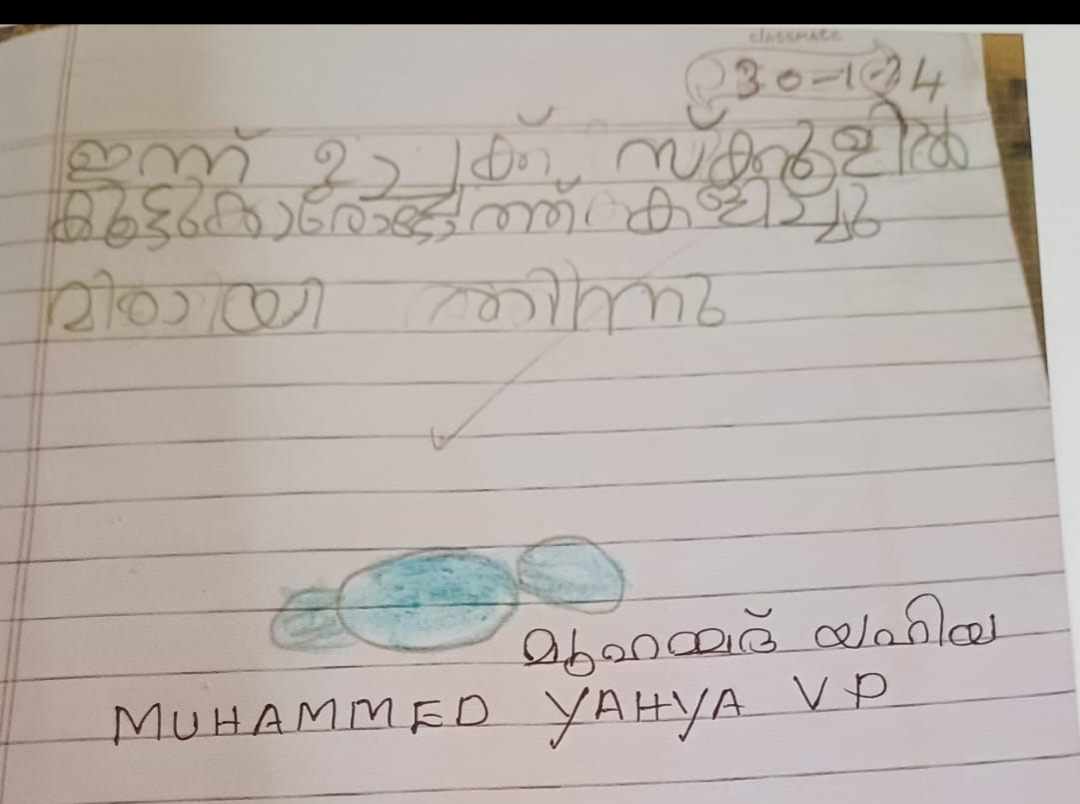 classmate
30-1-24
ഇന്ന് ഉച്ചക്ക് സ്കൂളിൽ
കളിച്ചു
മിഠായി തിന്നു
മുഹമ്മദ് യഹിയ
MUHAMMED YAHYA V P